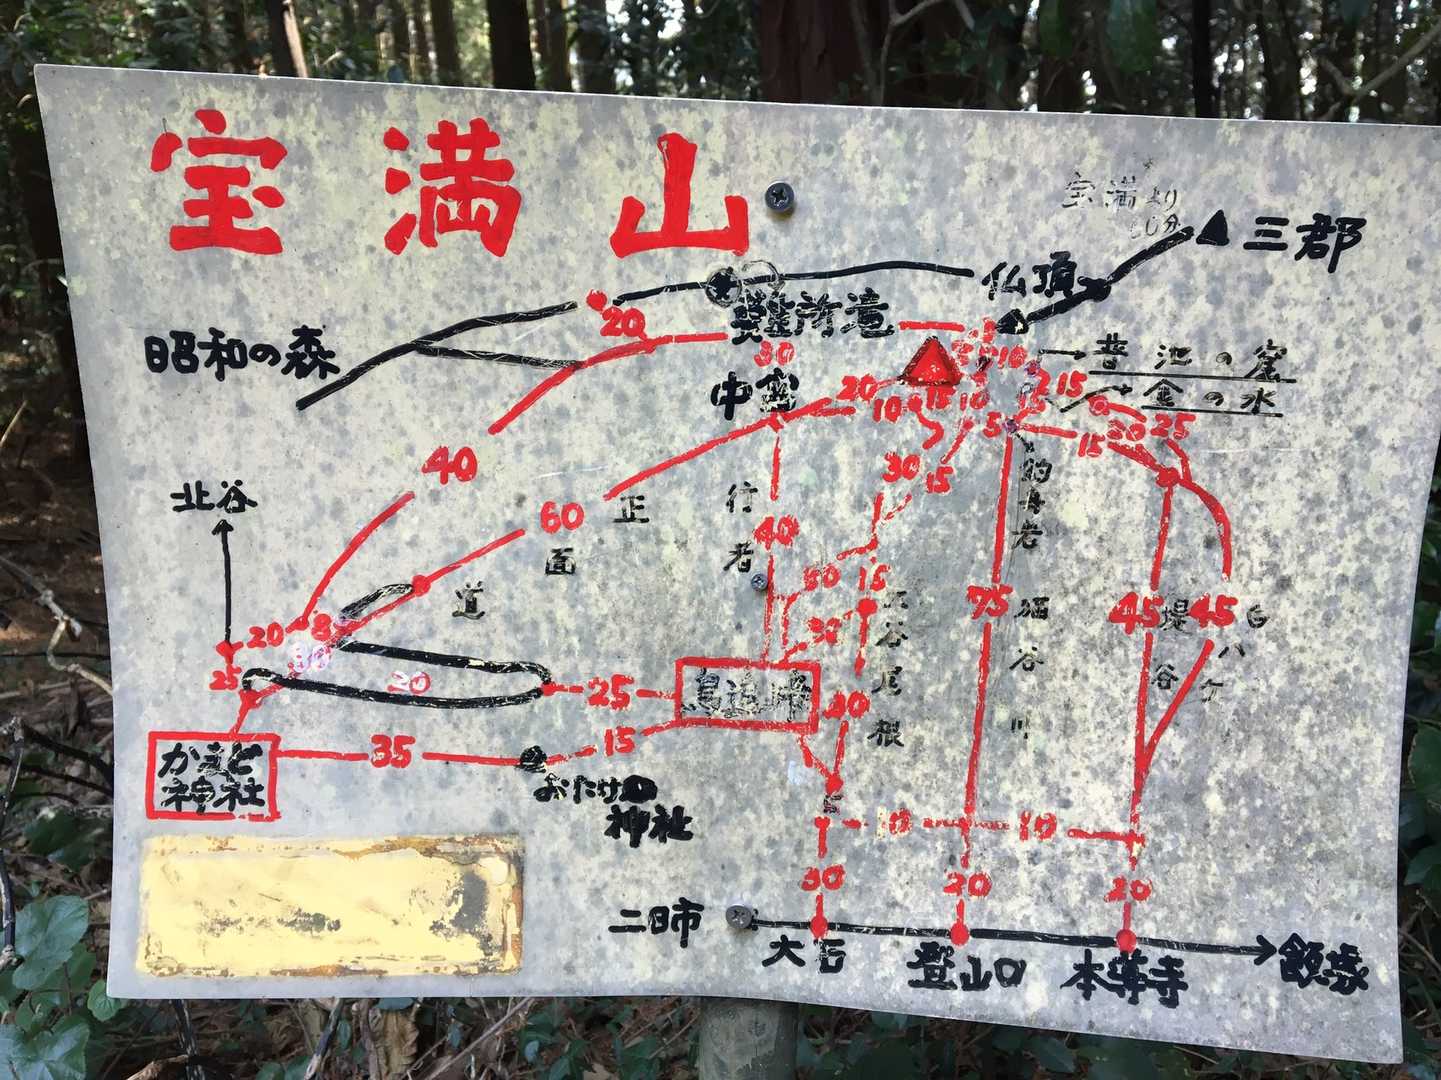 宝満山
宝満より
60分
三郡
仏頂
難所滝
20
昭和の森
30
昔池の窟
金の水
中宮
20
10
15
10
10
15
5
15
20
25
40
30
15
釣舟岩
北谷
60
正面道
行者
40
50
15
75
堀谷川
45
堤谷
45
尾根
30
20
8
25
20
25
鳥追峠
20
35
15
かまど
神社
おたけの
神社
10
10
30
20
20
二日市
大石
登山口
本導寺
飯塚